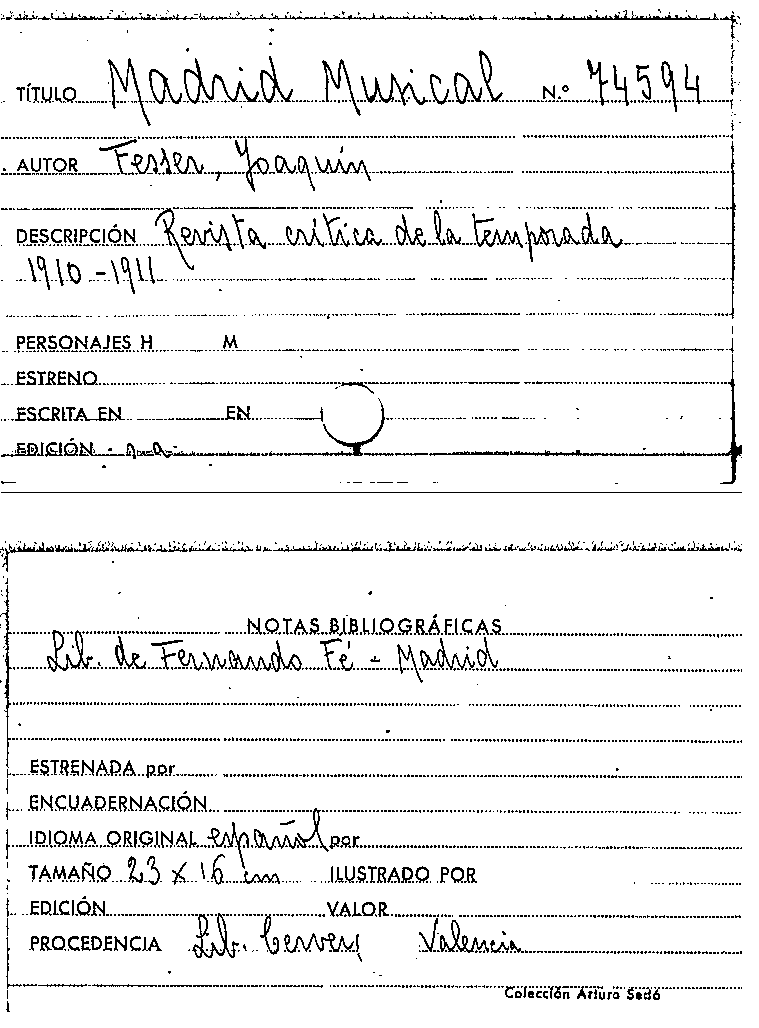 TÍTULO Madrid Musical N.º 74594
AUTOR Fesser, Joaquín
DESCRIPCIÓN Revista crítica de la temporada
1910-1911
PERSONAJES H M
ESTRENO
ESCRITA EN EN
EDICIÓN - a.a-
NOTAS BIBLIOGRÁFICAS
Lib. de Fernando Fé - Madrid
ESTRENADA por
ENCUADERNACIÓN
IDIOMA ORIGINAL español por
TAMAÑO 23 x 16 cm ILUSTRADO POR
EDICIÓN VALOR
PROCEDENCIA Lib. Valencia
Colección Arturo Sedó